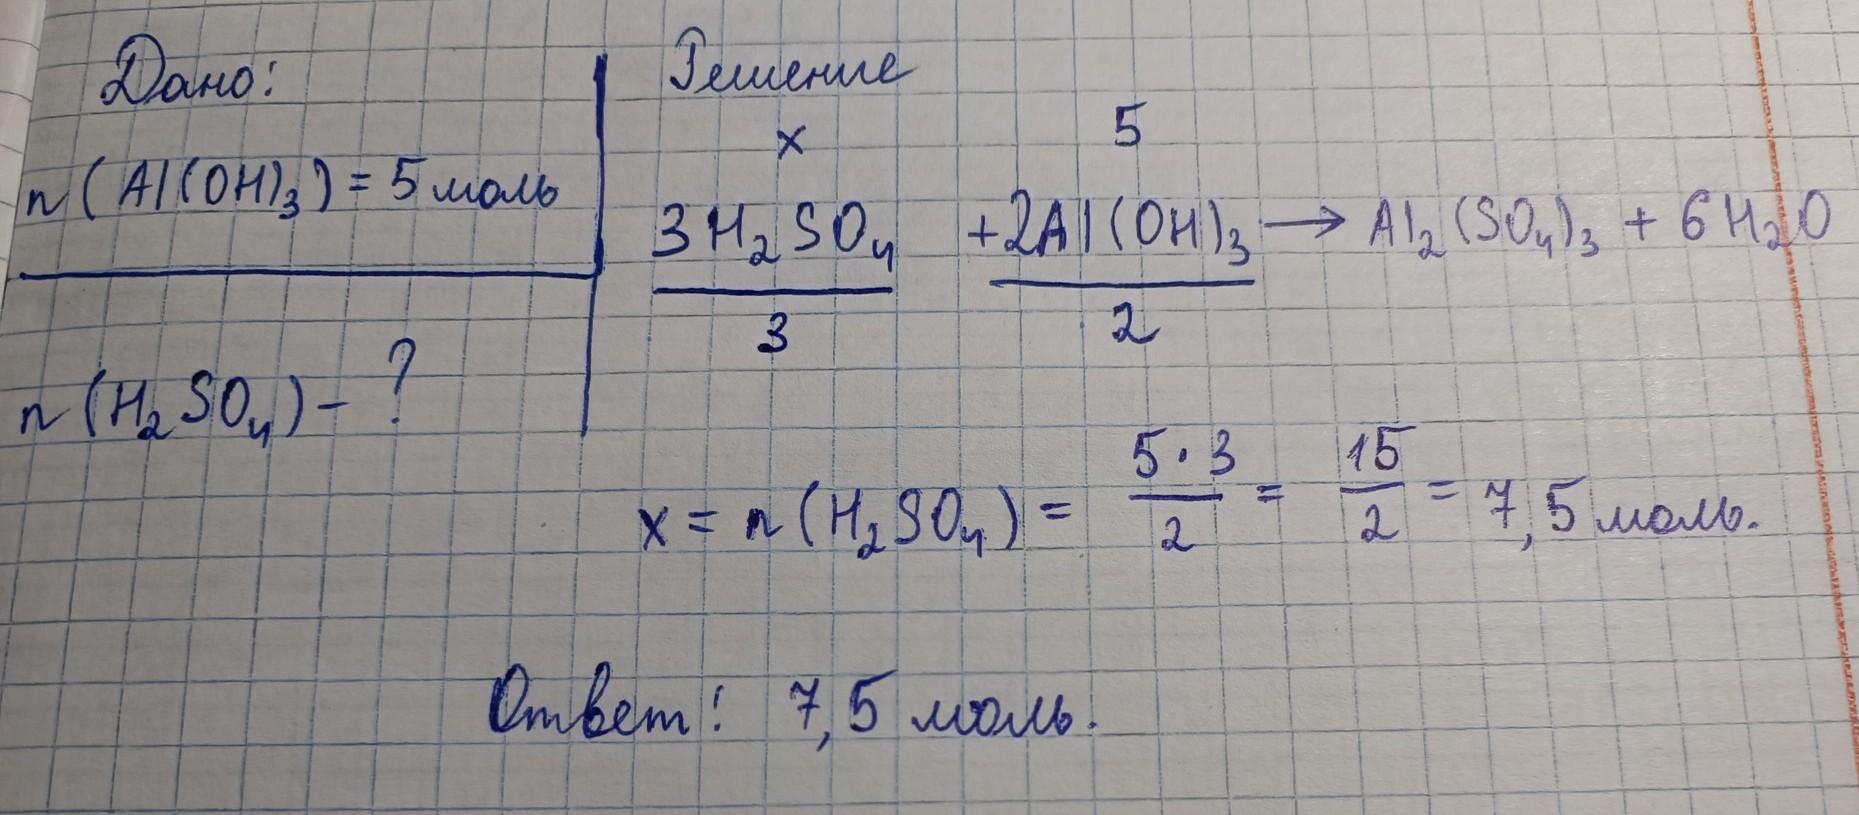 Дано:
n(Al(OH)₃) = 5 моль
n(H₂SO₄) - ?
Решение
x 5
3H₂SO₄ + 2Al(OH)₃ → Al₂(SO₄)₃ + 6H₂O
3 2
x = n(H₂SO₄) = 5·3/2 = 15/2 = 7,5 моль.
Ответ: 7,5 моль.